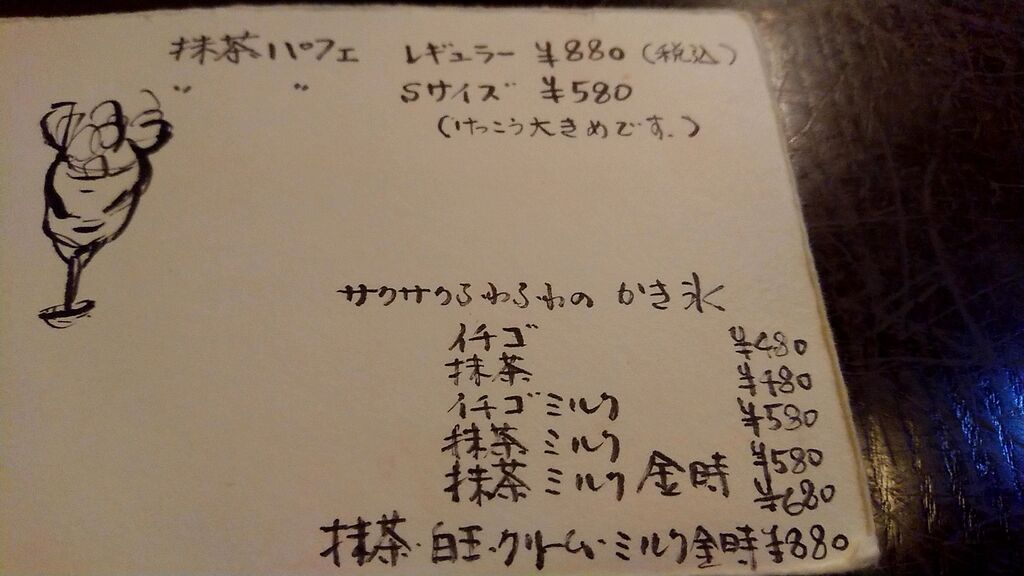 抹茶パフェ レギュラー ¥880 (税込)
〃 〃 Sサイズ ¥580
(けっこう大きめです。)
サクサクふわふわの かき氷
イチゴ ¥480
抹茶 ¥480
イチゴミルク ¥580
抹茶ミルク ¥580
抹茶ミルク金時 ¥680
抹茶・白玉・クリーム・ミルク金時¥880